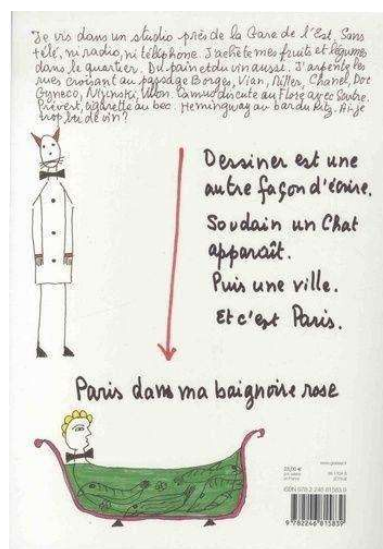 Je vis dans un studio près de la Gare de l'Est. Sans
télé, ni radio, ni téléphone. J'achète mes fruits et légumes
dans le quartier. Du pain et du vin aussi. J'arpente les
rues croisant au passage Borges, Vian, Miller, Chanel, Doc
Gyneco, Nijinski, Villon. Camus discute au Flore avec Sartre.
Prévert, cigarette au bec. Hemingway au bar du Ritz. Ai-je
trop bu de vin?
Dessiner est une
autre façon d'écrire.
Soudain un Chat
apparaît.
Puis une ville.
Et c'est Paris.
Paris dans ma baignoire rose
ISBN 978 2 246 81583 9
9 782246 815839